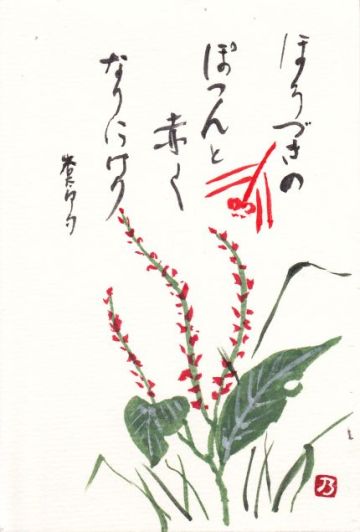 ほうづきの
ぽつんと
赤く
なりにけり